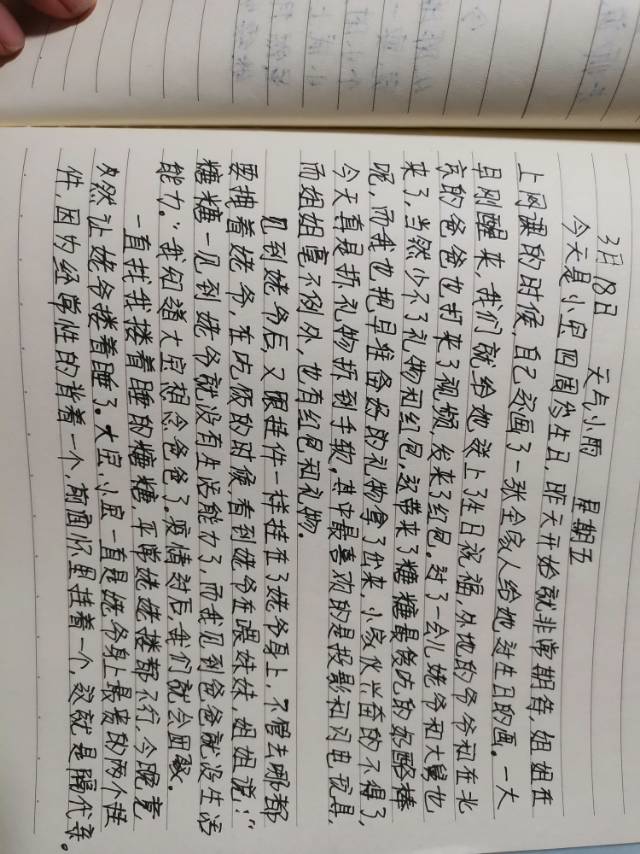 3月18日 天气小雨 星期五
今天是小宝四周岁生日,昨天开始就非常期待,姐姐在
上网课的时候,自己还画了一张全家人给她过生日的画。一大
早刚醒来,我们就给她送上了生日祝福,外地的爷爷和在北
京的爸爸也打来了视频,发来了红包。过了一会儿姥爷和大舅也
来了,当然少不了礼物和红包,还带来了糖糖最爱吃的奶酪棒
呢,而我也把早准备好的礼物拿了出来,小家伙兴奋的不得了,
今天真是拆礼物拆到手软。其中最喜欢的是投影和闪电玩具,
而姐姐毫不例外,也有红包和礼物。
见到姥爷后,又跟挂件一样挂在了姥爷身上,不管去哪都
要拽着姥爷,在吃饭的时候,看到姥爷在喂妹妹,姐姐说:“
糖糖一见到姥爷就没有生活能力了,而我见到爸爸就没生活
能力。”我知道大宝想念爸爸了。疫情过后,我们就会团聚。
一直找我搂着睡的糖糖,平常姥姥搂都不行,今晚竟
然让姥爷搂着睡了。大宝、小宝一直是姥爷身上最贵的两个挂
件,因为经常性的背着一个,前面怀里挂着一个,这就是隔代亲。